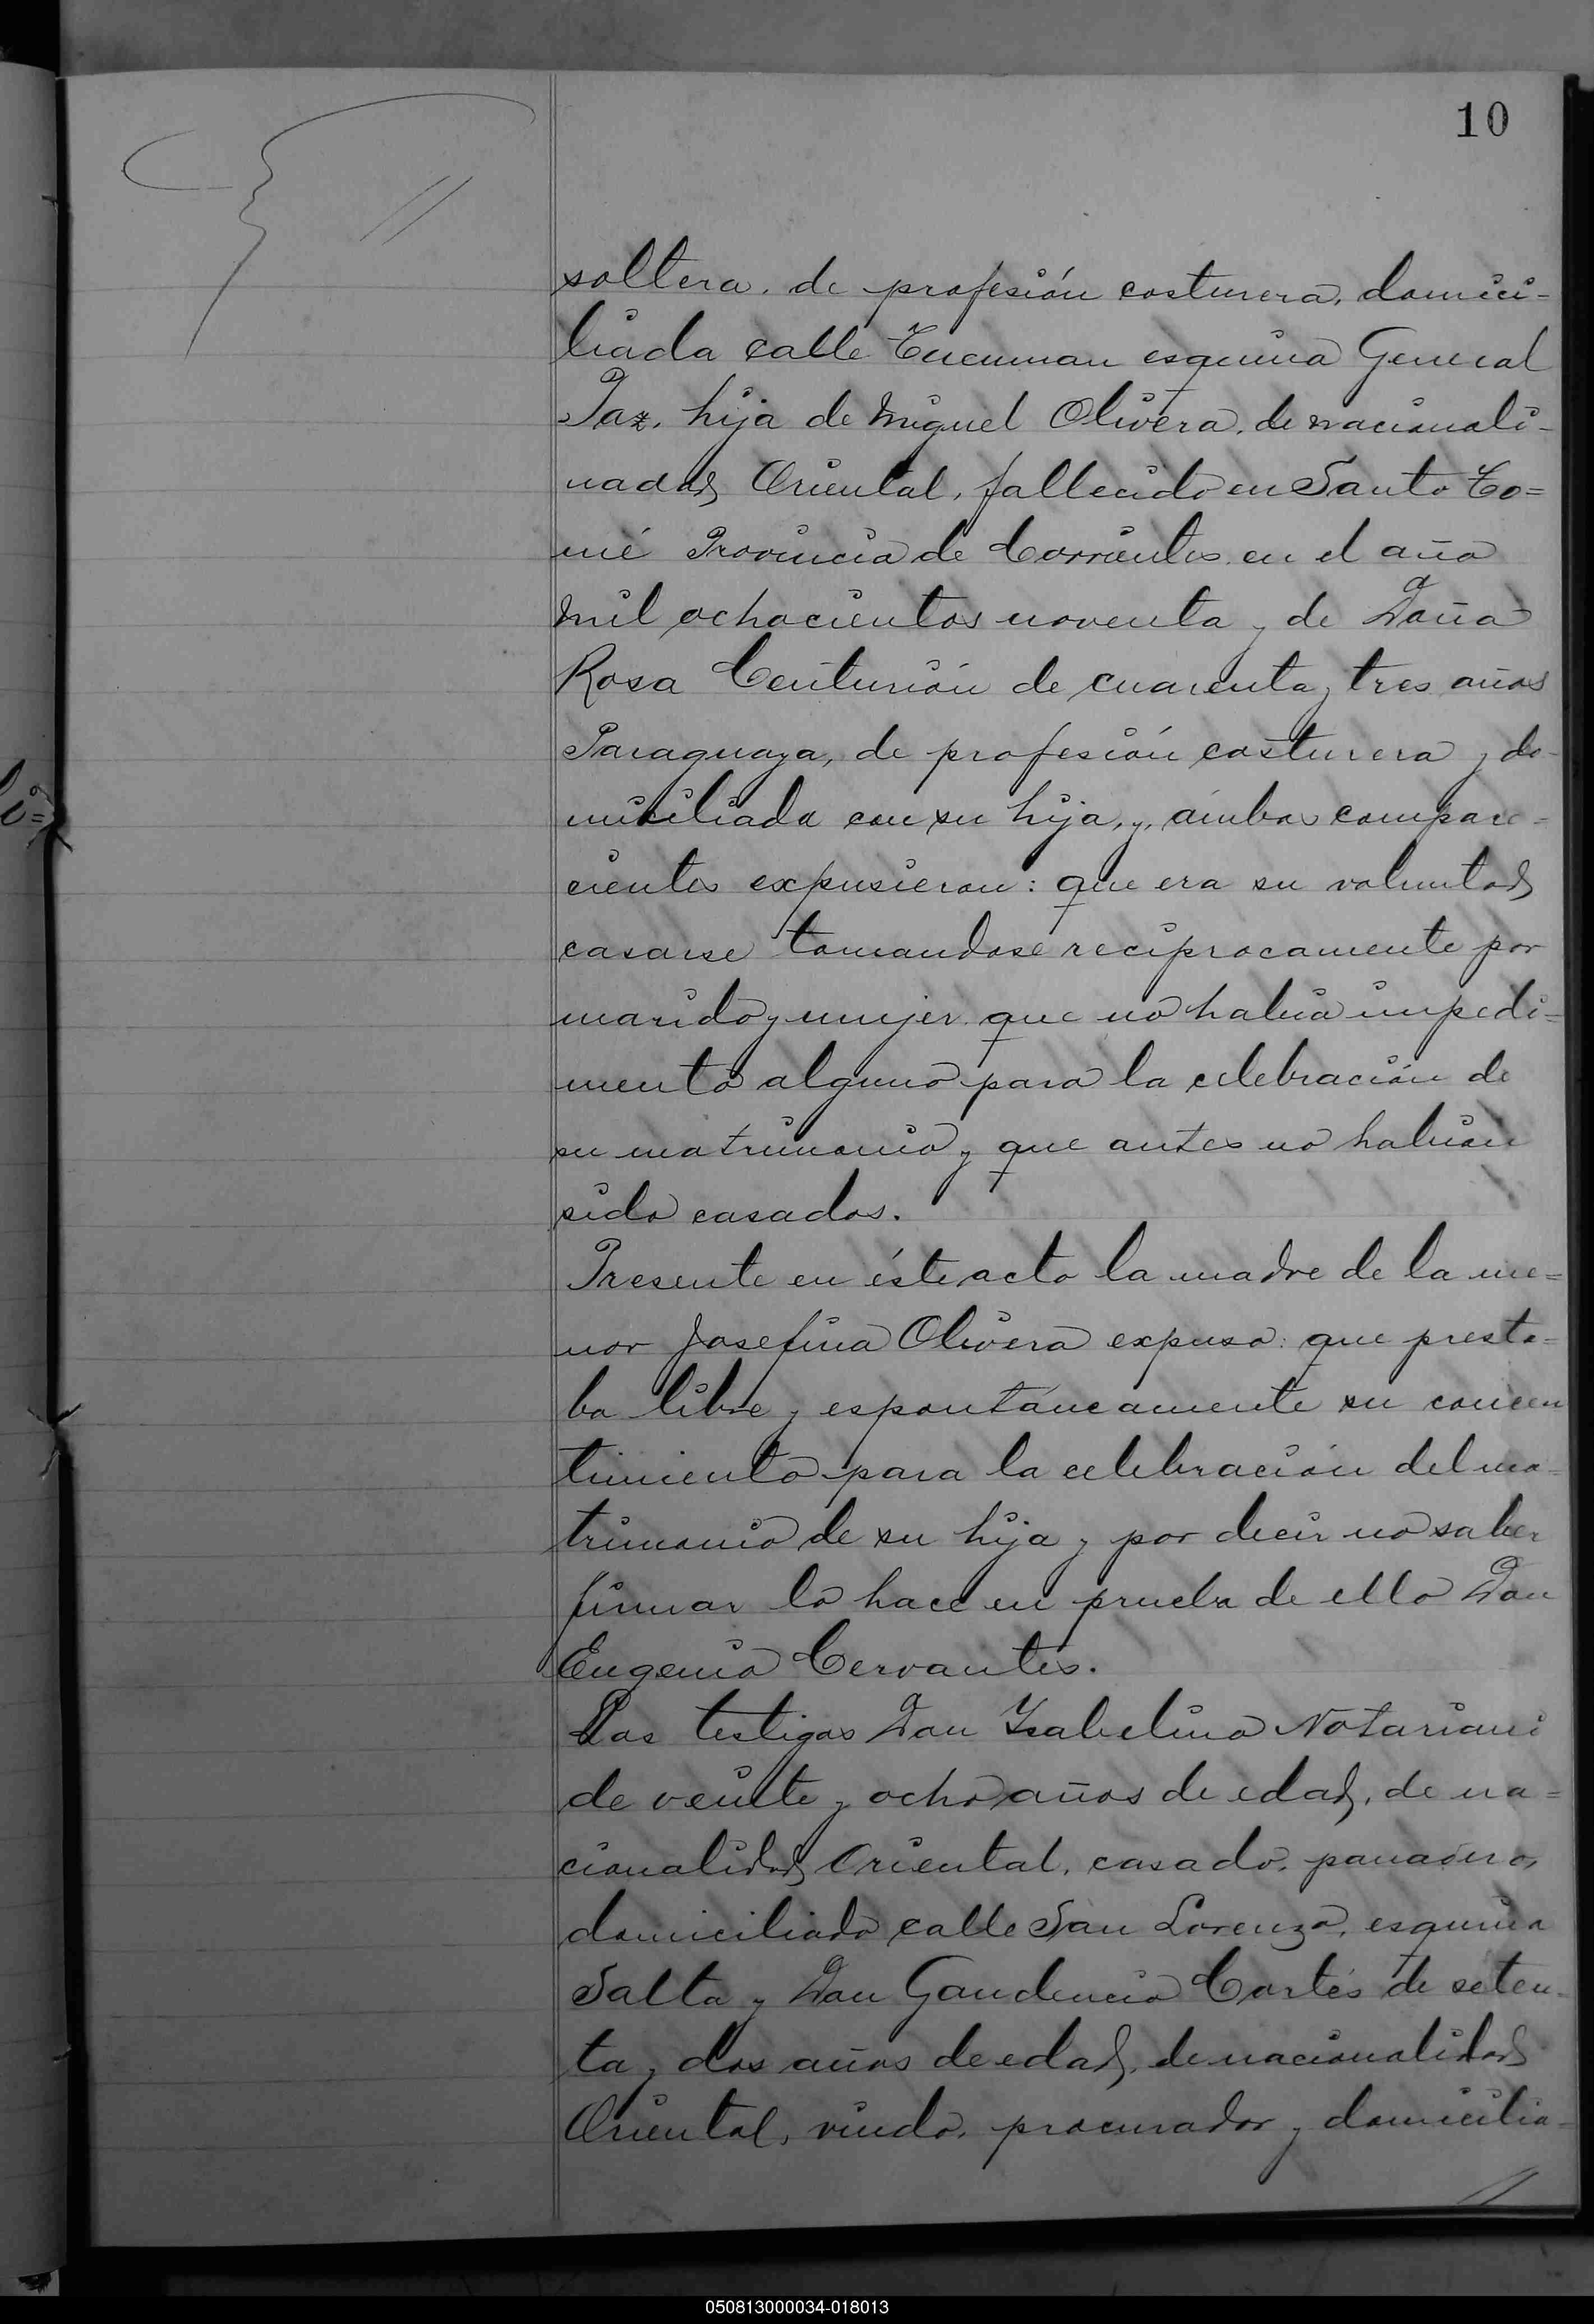 10
soltera, de profesión costurera, domici-
liada calle Tucuman esquina General
Paz, hija de Miguel Olivera, de nacionali-
nadad Oriental, fallecido en Santo To=
mé Provincia de Corrientes en el año
mil ochocientos noventa y de Doña
Rosa Centurión de cuarenta y tres años
Paraguaya, de profesión costurera y do-
miciliada con su hija, y, ámbos compare-
cientes expusieron: que era su voluntad
casarse tomandose reciprocamente por
marido y mujer que no habia impedi=
mento alguno para la celebración de
su matrimonio y que antes no habian
sido casados.
Presente en éste acto la madre de la me=
nor Josefina Olivera expuso: que presta-
ba libre y espontáneamente su concen
timiento para la celebración del ma-
trimonio de su hija y por decir no saber
firmar lo hace en prueba de ello Don
Eugenio Cervantes.
Los testigos Don Ysabelino Notariani
de veinte y ocho años de edad, de na=
cionalidad Oriental, casado, panadero,
domiciliado calle San Lorenzo, esquina
Salta y Don Gaudencio Cortés de seten-
ta y dos años de edad, de nacionalidad
Oriental, viudo, procurador y domicilia-
050813000034-018013